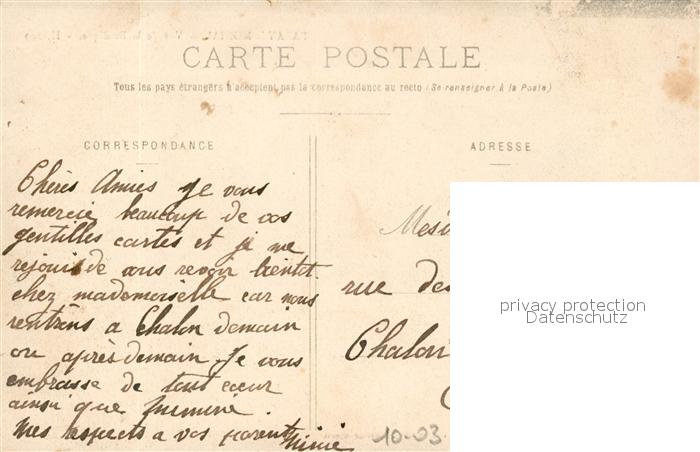 CARTE POSTALE
Tous les pays étrangers n'acceptent pas la correspondance au recto (Se renseigner à la Poste)
CORRESPONDANCE
Chères Amies je vous
remercie beaucoup de vos
gentilles cartes et je me
rejouis de vous revoir bientot
chez mademoiselle car nous
rentrons a Chalon demain
ou après demain. Je vous
embrasse de tout cœur
ainsi que
Mes respects a vos parents
10-03
ADRESSE
rue des
Chalon
privacy protection
Datenschutz